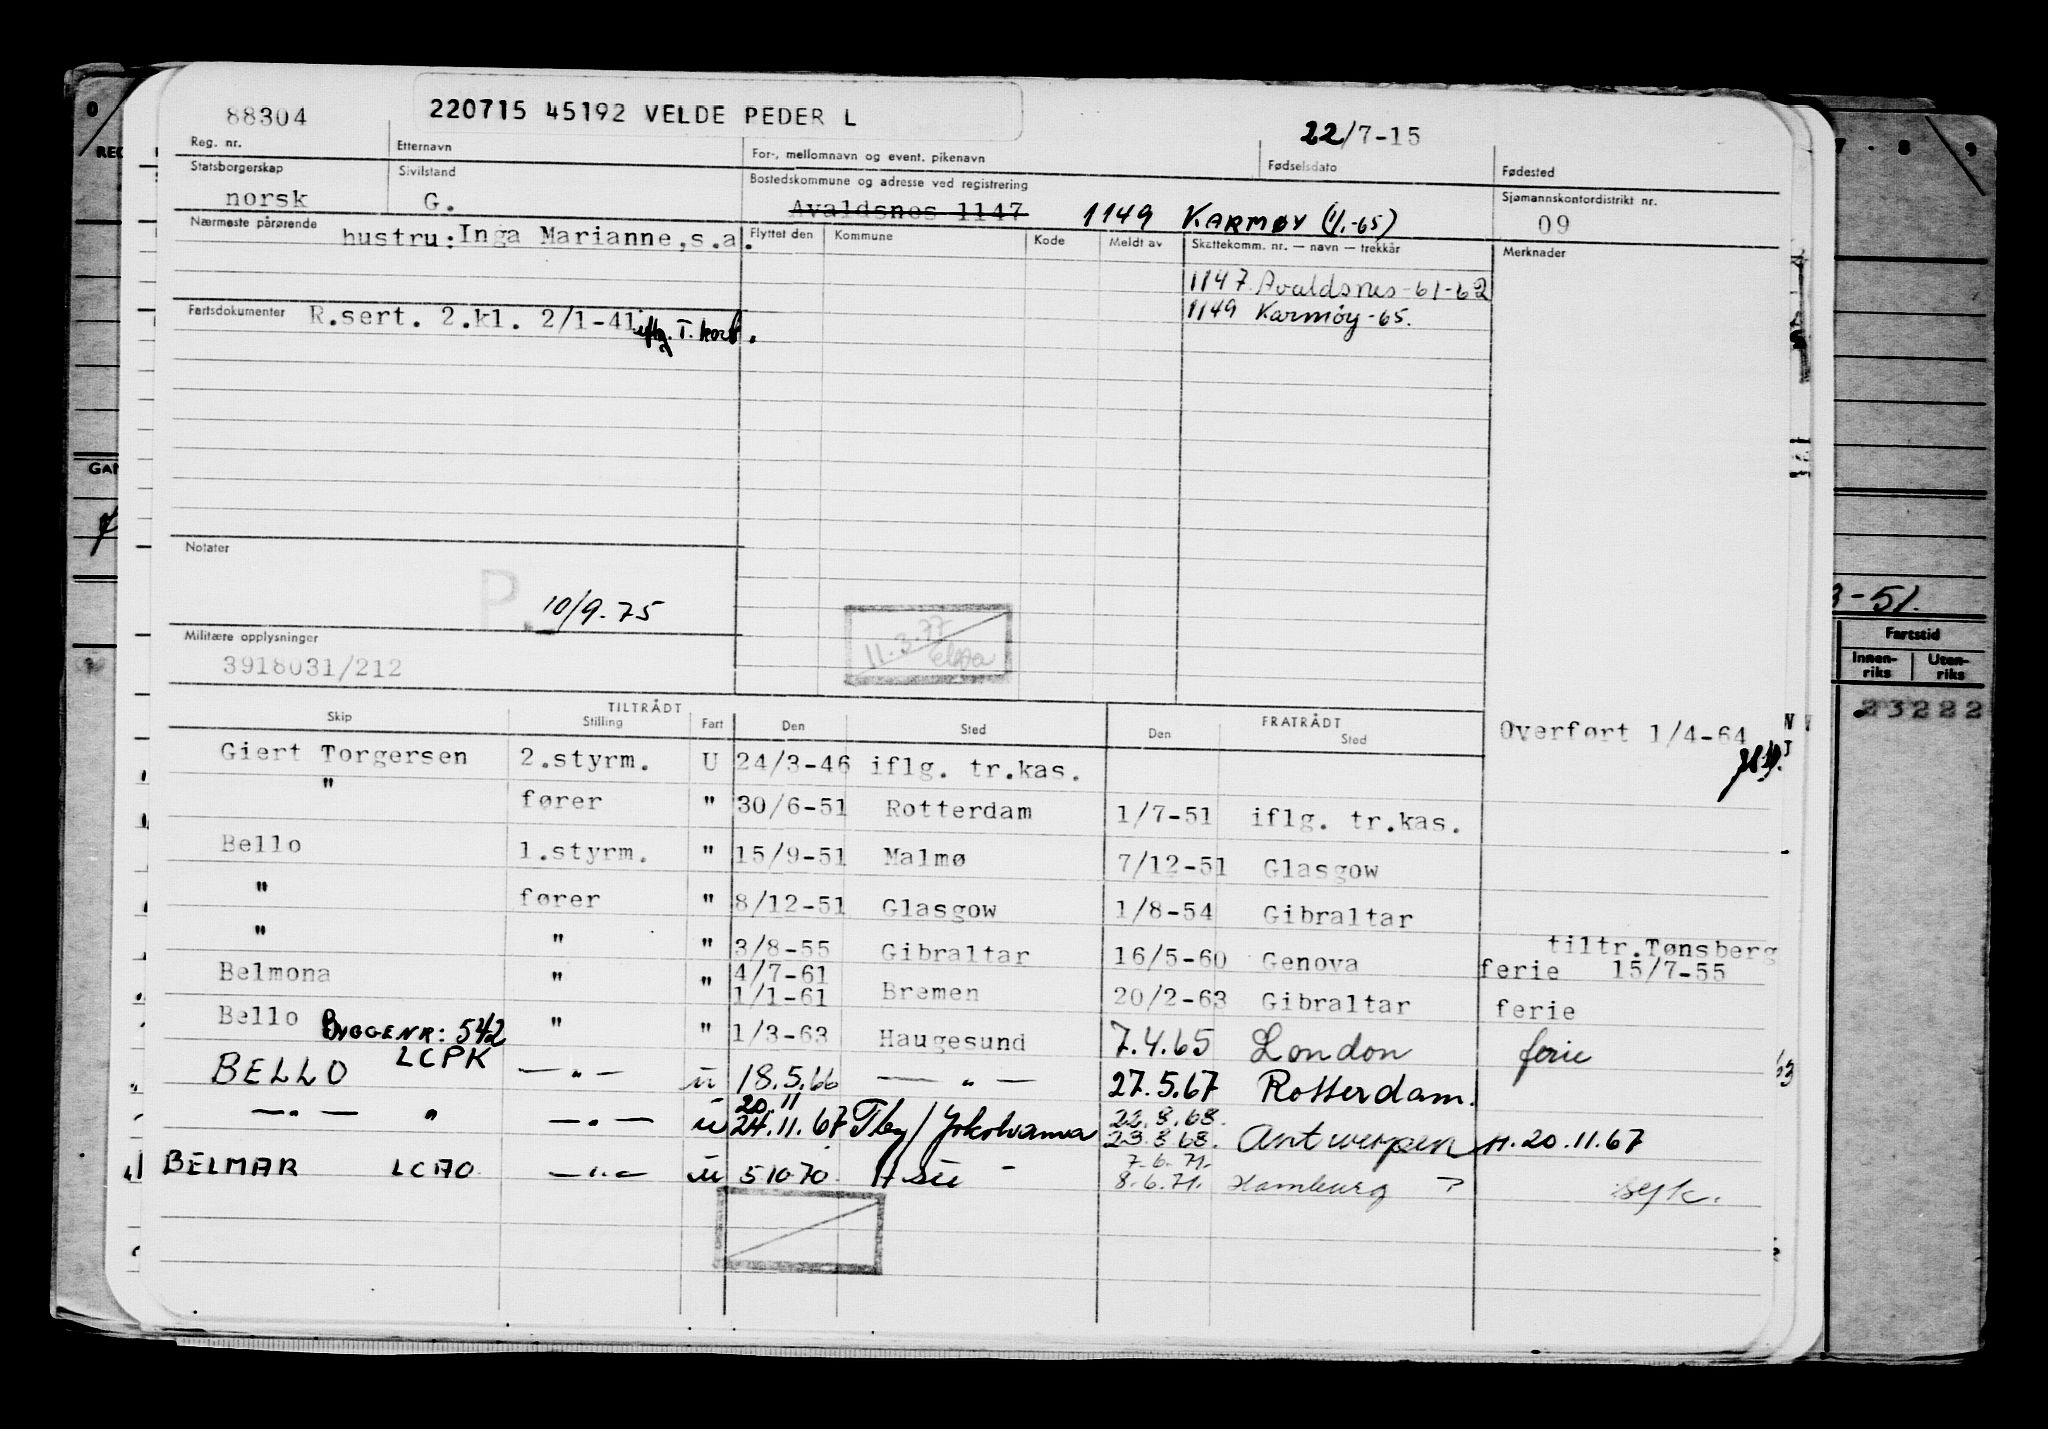 88304 220715 45192 VELDE PEDER L 22/7-15
Reg. nr. Etternavn For-, mellomnavn og event. pikenavn Fødselsdato Fødested
Statsborgerskap Sivilstand Bostedskommune og adresse ved registrering Sjømannskontordistrikt nr.
norsk G. Avaldsnes 1147 1149 KARMØY (1/1-65) 09
Nærmeste pårørende hustru: Inga Marianne, s.a. Flyttet den Kommune Kode Meldt av Skattekomm. nr. — navn — trekkår Merknader
1147 Avaldsnes-61-62
Fartsdokumenter R.sert. 2.kl. 2/1-41 iflg. T. kort. 1149 Karmøy-65.
Notater
P. 10/9.75
11.3.77
Militære opplysninger
3918031/212
TILTRÅDT FRATRÅDT
Skip Stilling Fart Den Sted Den Sted
Overført 1/4-64
Giert Torgersen 2.styrm. U 24/3-46 iflg. tr.kas.
" fører " 30/6-51 Rotterdam 1/7-51 iflg. tr.kas.
Bello 1.styrm. " 15/9-51 Malmø 7/12-51 Glasgow
" fører " 8/12-51 Glasgow 1/8-54 Gibraltar
tiltr.Tønsberg
" " " 3/8-55 Gibraltar 16/5-60 Genova ferie 15/7-55
4/7-61
Belmona " " 1/1-61 Bremen 20/2-63 Gibraltar ferie
Bello BYGGENR: 542 " " 1/3-63 Haugesund 7.4.65 London ferie
BELLO LCPK —"— u 18.5.66 —"— 27.5.67 Rotterdam.
20.11 22.8.68.
—"— " —"— u 24.11.67 Fby/Yokohama 23.8.68. Antwerpen H.20.11.67
7.6.71.
BELMAR LCAO —"— u 5.10.70 8.6.71. Hamburg ?
0 REG 7 . 8 9
GAN
3-51.
Fartstid
Innen-riks Uten-riks
23222
63